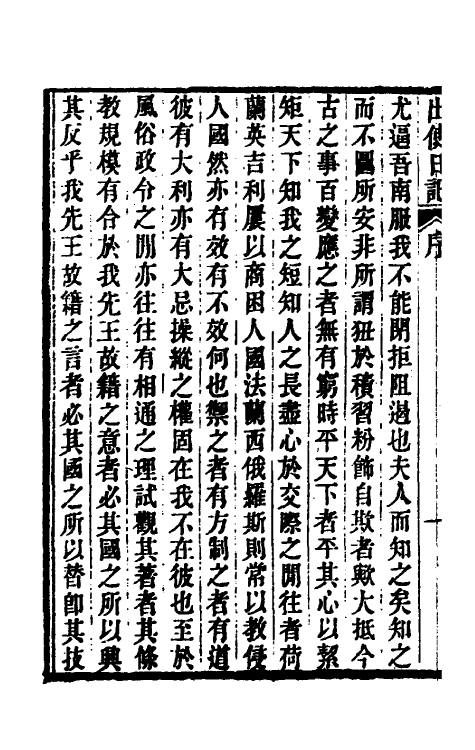 出使日記
序
一
尤逼吾南服我不能閉拒阻遏也夫人而知之矣知之
而不圖所安非所謂狃於積習粉飾自欺者歟大抵今
古之事百變應之者無有窮時平天下者平其心以絜
矩天下知我之短知人之長盡心於交際之閒往者荷
蘭英吉利屢以商困人國法蘭西俄羅斯則常以教侵
人國然亦有效有不效何也禦之者有方制之者有道
彼有大利亦有大忌操縱之權固在我不在彼也至於
風俗政令之閒亦往往有相通之理試觀其著者其條
教規模有合於我先王故籍之意者必其國之所以興
其反乎我先王故籍之言者必其國之所以替卽其技